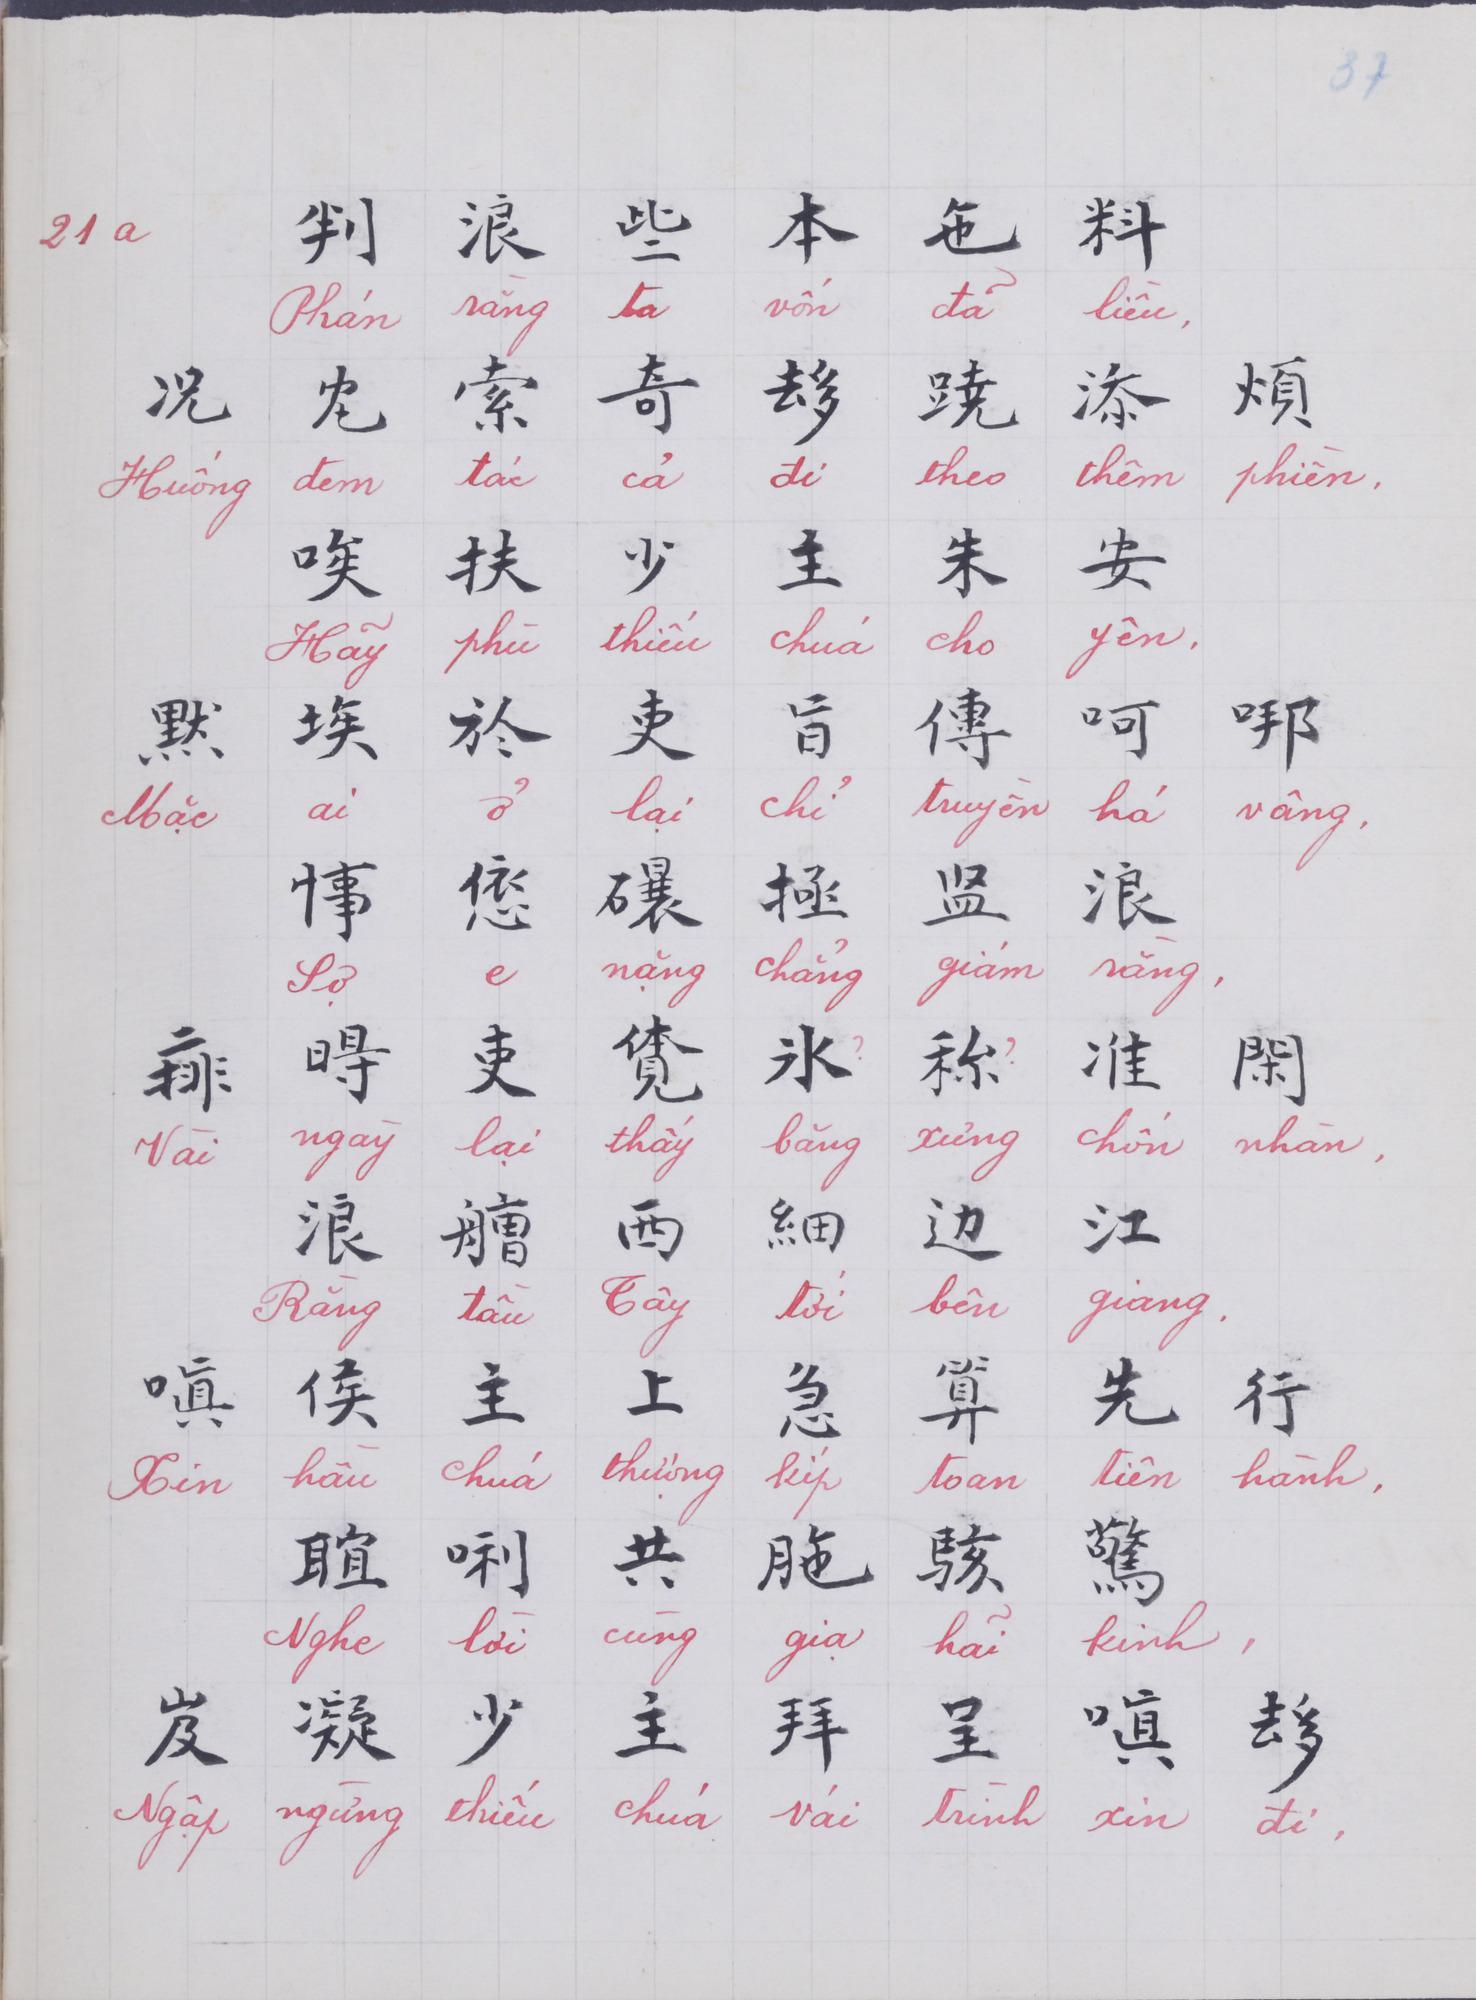 37
21 a 判 浪 些 本 㐌 料
Phán rằng ta vốn đã liều,
况 㐌 索 奇 𠫾 蹺 添 煩
Huống đem tác cả đi theo thêm phiền,
唉 扶 少 主 朱 安
Hãy phù thiếu chúa cho yên,
默 埃 於 吏 旨 傳 呵 哪
Mặc ai ở lại chỉ truyền há vâng,
㤦 偯 𥗾 極 监 浪
Sợ e nặng chẳng giám rằng,
𠄧 㝵 吏 覓 氷? 称? 准 閑
Vài ngày lại thấy bằng xưng chốn nhàn,
浪 艚 西 細 边 江
Rằng tầu Tây tới bên giang,
嗔 侯 主 上 急 算 先 行
Xin hầu chúa thượng kíp toan tiên hành,
𦖑 唎 共 胣 駭 驚
Nghe lời cùng giạ hãi kinh,
岌 凝 少 主 拜 呈 嗔 𠫾
Ngập ngừng thiếu chúa vái trình xin đi,